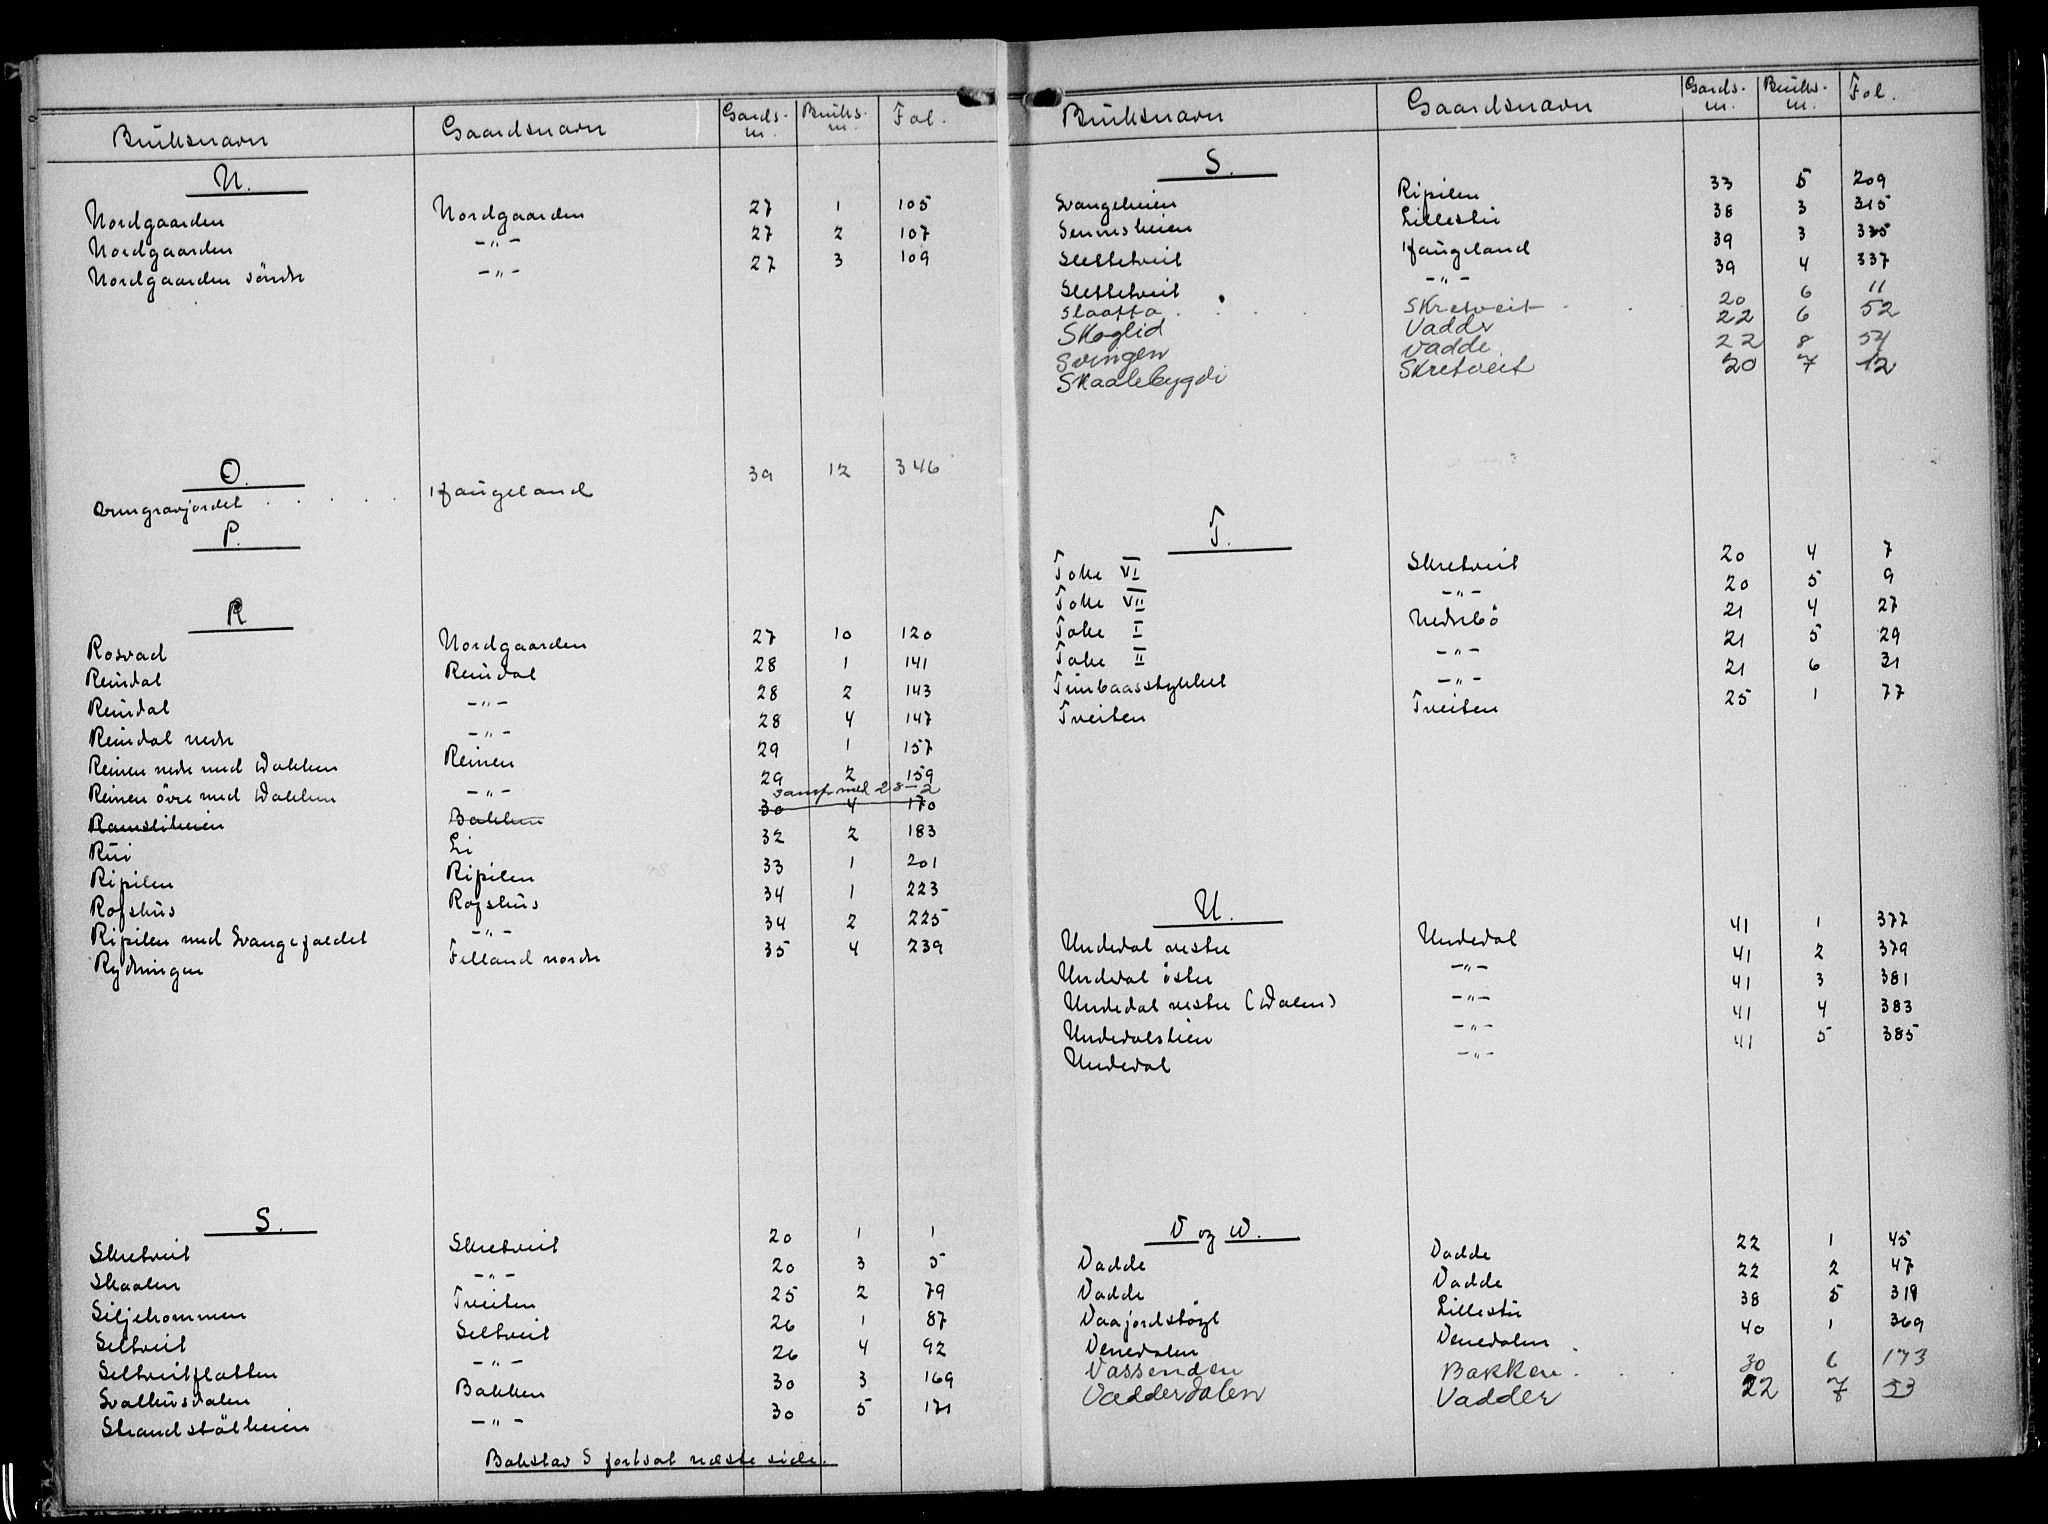 Bruksnavn Gaardsnavn Gards-nr. Bruks-nr. Fol.
N.
Nordgaarden Nordgaarden 27 1 105
Nordgaarden -"- 27 2 107
Nordgaarden söndre -"- 27 3 109
O.
Ormgravjordet . . . . . Haugeland 39 12 346
P.
R
Rosvad Nordgaarden 27 10 120
Reindal Reindal 28 1 141
Reindal -"- 28 2 143
Reindal nedre -"- 28 4 147
Reinen nedre med Dokken Reinen 29 1 157
Reinen övre med Dokken -"- 29 2 159
Samf. med 28-2
Ramsliheien Bakken 30 4 170
Rui Li 32 2 183
Ripilen Ripilen 33 1 201
Rofshus Rofshus 34 1 223
Ripilen med Svangefaldet -"- 34 2 225
Rydningen Felland nordre 35 4 239
S.
Skretveit Skretveit 20 1 1
Skaalen -"- 20 3 5
Siljekommen Tveiten 25 2 79
Seltveit Seltveit 26 1 87
Seltveitflatten -"- 26 4 92
Svalhusdalen Bakken 30 3 169
Strandstölheien -"- 30 5 171
Bokstav S fortsat næste side.
Bruksnavn Gaardsnavn Gards-nr. Bruks-nr. Fol.
S.
Svangeheien Ripilen 33 5 209
Sennesheien Lillestu 38 3 315
Slettetveit Haugeland 39 3 335
Slettetveit -"- 39 4 337
Slaatta . . . . Skretveit . . 20 6 11
Skoglid Vadder 22 6 52
Svingen Vadde 22 8 54
Skaalebygdi Skretveit 20 7 12
T.
Toke VI Skretveit 20 4 7
Toke VII -"- 20 5 9
Toke I Nedrebö 21 4 27
Toke II -"- 21 5 29
Timbaasstykket -"- 21 6 31
Tveiten Tveiten 25 1 77
U.
Undedal vestre Undedal 41 1 377
Undedal östre -"- 41 2 379
Undedal vestre (Dalen) -"- 41 3 381
Undedalslien -"- 41 4 383
Undedal -"- 41 5 385
V og W.
Vadde Vadde 22 1 45
Vadde Vadde 22 2 47
Vaajordstøyl Lillestu 38 5 319
Venedalen Venedalen 40 1 369
Vassenden Bakken . . . 30 6 173
Vadderdalen Vadder 22 7 53